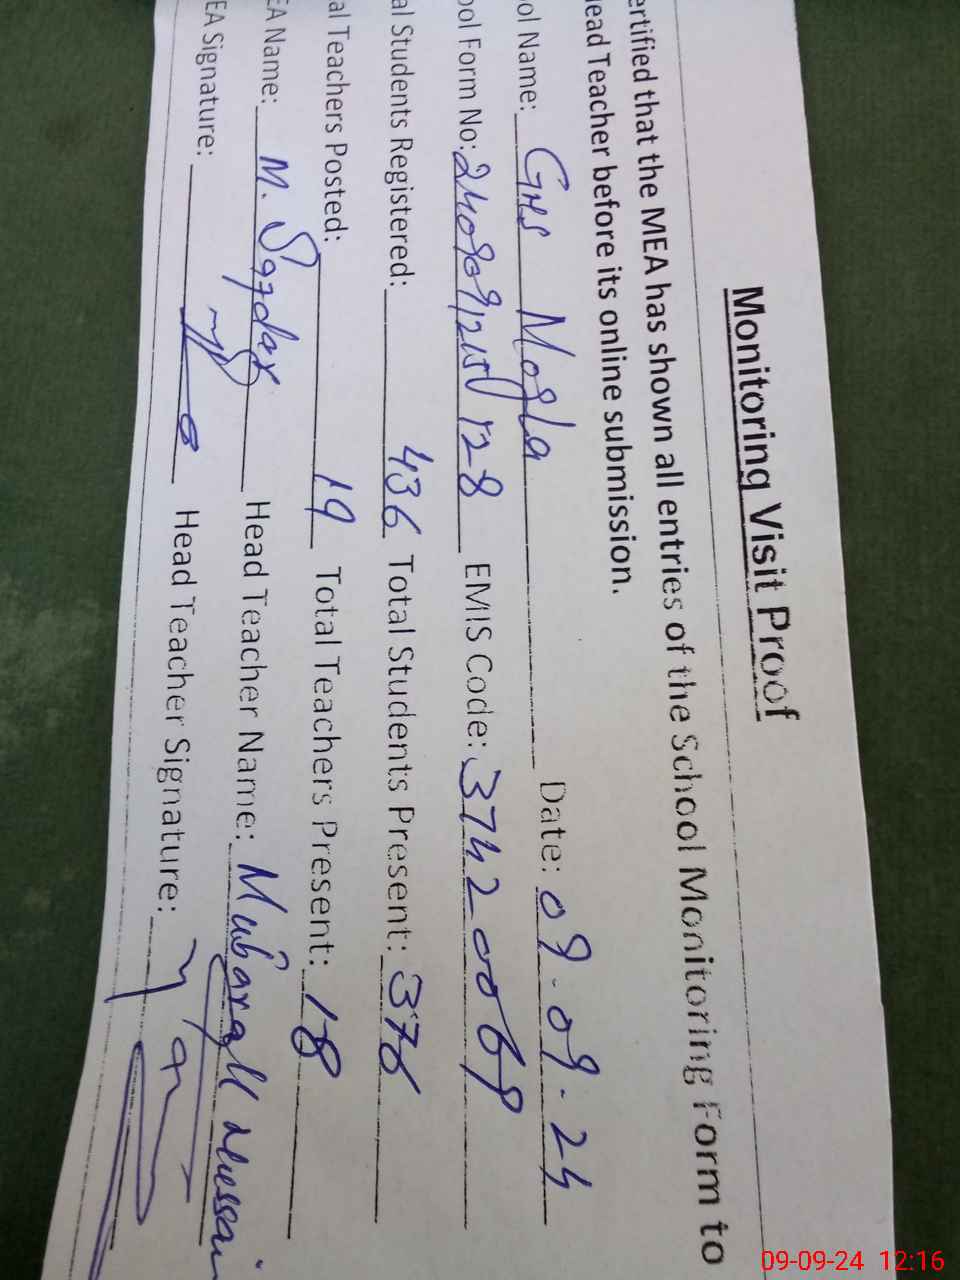 Monitoring Visit Proof
ertified that the MEA has shown all entries of the School Monitoring Form to
ead Teacher before its online submission.
ol Name: GHS Mogla Date: 09-09-24
ool Form No: EMIS Code: 37420069
al Students Registered: 436 Total Students Present: 376
al Teachers Posted: 19 Total Teachers Present: 18
EA Name: M. Safdar Head Teacher Name: Mubarak Hussain
EA Signature: Head Teacher Signature:
09-09-24 12:16